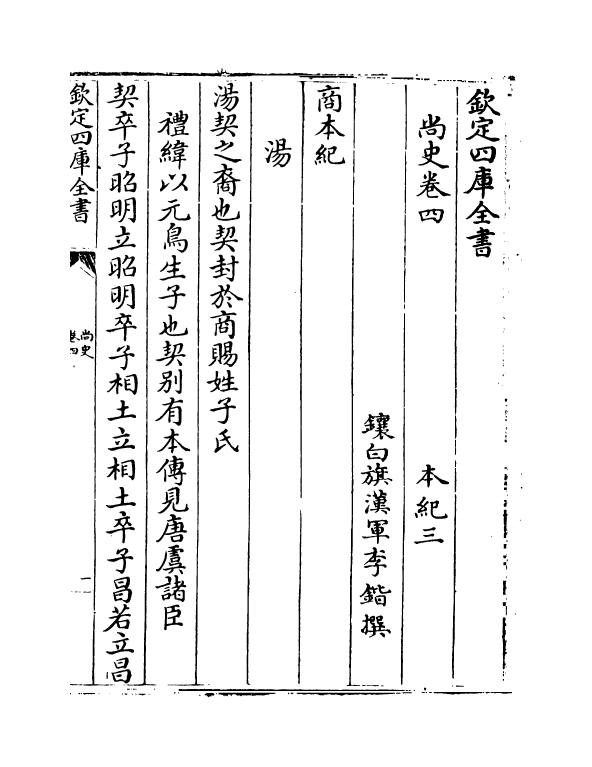 欽定四庫全書
尚史卷四　本紀三
鑲白旗漢軍李鍇撰
商本紀
湯
湯契之裔也契封於商賜姓子氏
禮緯以元鳥生子也契别有本傳見唐虞諸臣
契卒子昭明立昭明卒子相土立相土卒子昌若立昌
欽定四庫全書
尚史
卷四
一